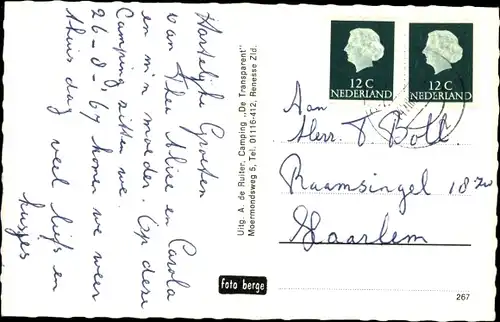 Hartelijke Groeten
van Theo Alice en Carola
en m'n moeder. Op deze
Camping zitten we
26-8-'67 komen we weer
thuis dag veel liefs en
kusjes
Uitg. A. de Ruiter, Camping „De Transparant"
Moermondsweg 5, Tel. 01116-412, Renesse Zld.
foto berge
12 C
NEDERLAND
12 C
NEDERLAND
Aan
Herr. T. Bott.
Raamsingel 18 zw
Haarlem
267